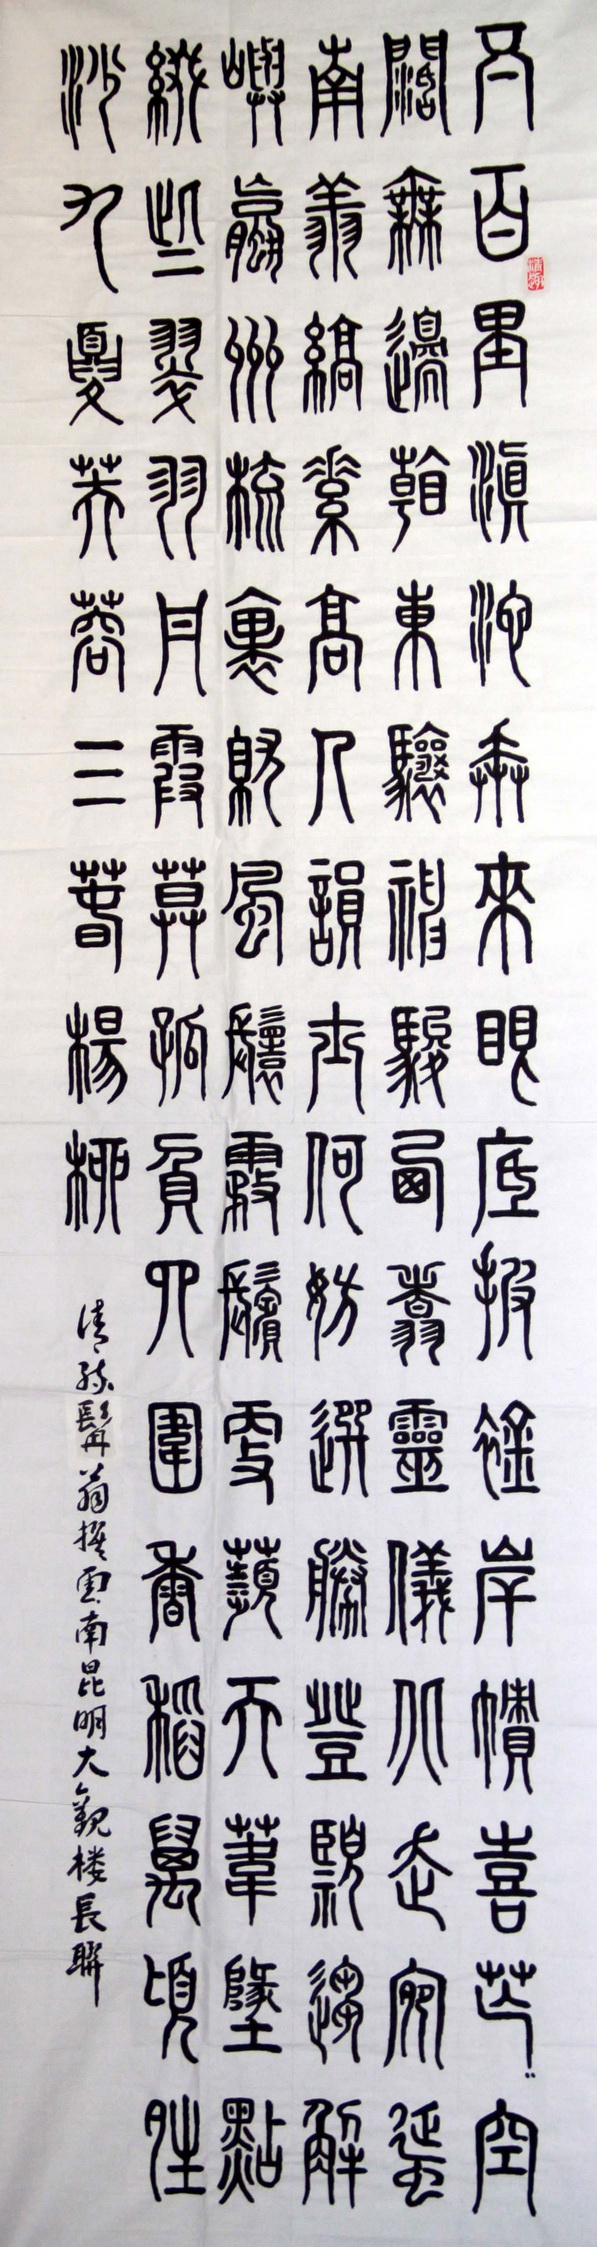 五百里滇池奔來眼底披襟岸幘喜茫〻空
闊無邊看東驤神駿西翥靈儀北走宛蜒
南翔縞素高人韻士何妨選勝登臨趁解
嶼蠃州梳裹就風鬟霧鬢更蘋天葦墬點
綴些翠羽丹霞莫孤負四圍香稻萬頃晴
沙九夏芙蓉三春楊柳
清孫髯翁撰雲南昆明大觀楼長聯